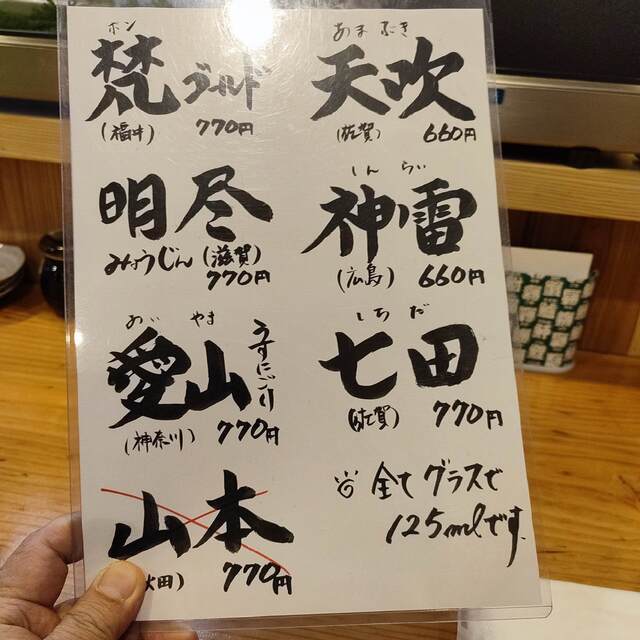 ボン
梵 ゴールド
(福井) 770円
明尽
みょうじん (滋賀)
770円
あいやま
愛山 うすにごり
(神奈川) 770円
山本
田) 770円
あまぶき
天吹
(佐賀) 660円
しんらい
神雷
(広島) 660円
しちだ
七田
(佐賀) 770円
全てグラスで
125mlです。